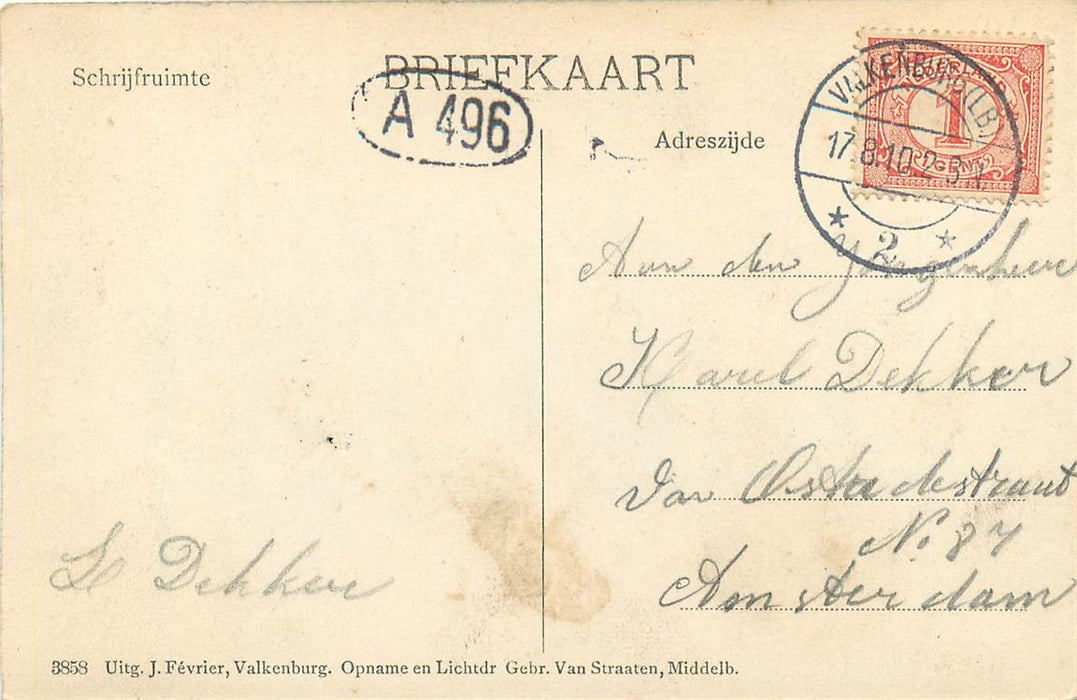 BRIEFKAART
Schrijfruimte
A 496
Adreszijde
NEDERLAND
1
CENT
VALKENBURG (LB.)
17.8.10.2-3 N.
2
Aan den Jongenheer
Karel Dekker
Van Ostadestraat
No 87
Amsterdam
L Dekker
3858 Uitg. J. Février, Valkenburg. Opname en Lichtdr Gebr. Van Straaten, Middelb.